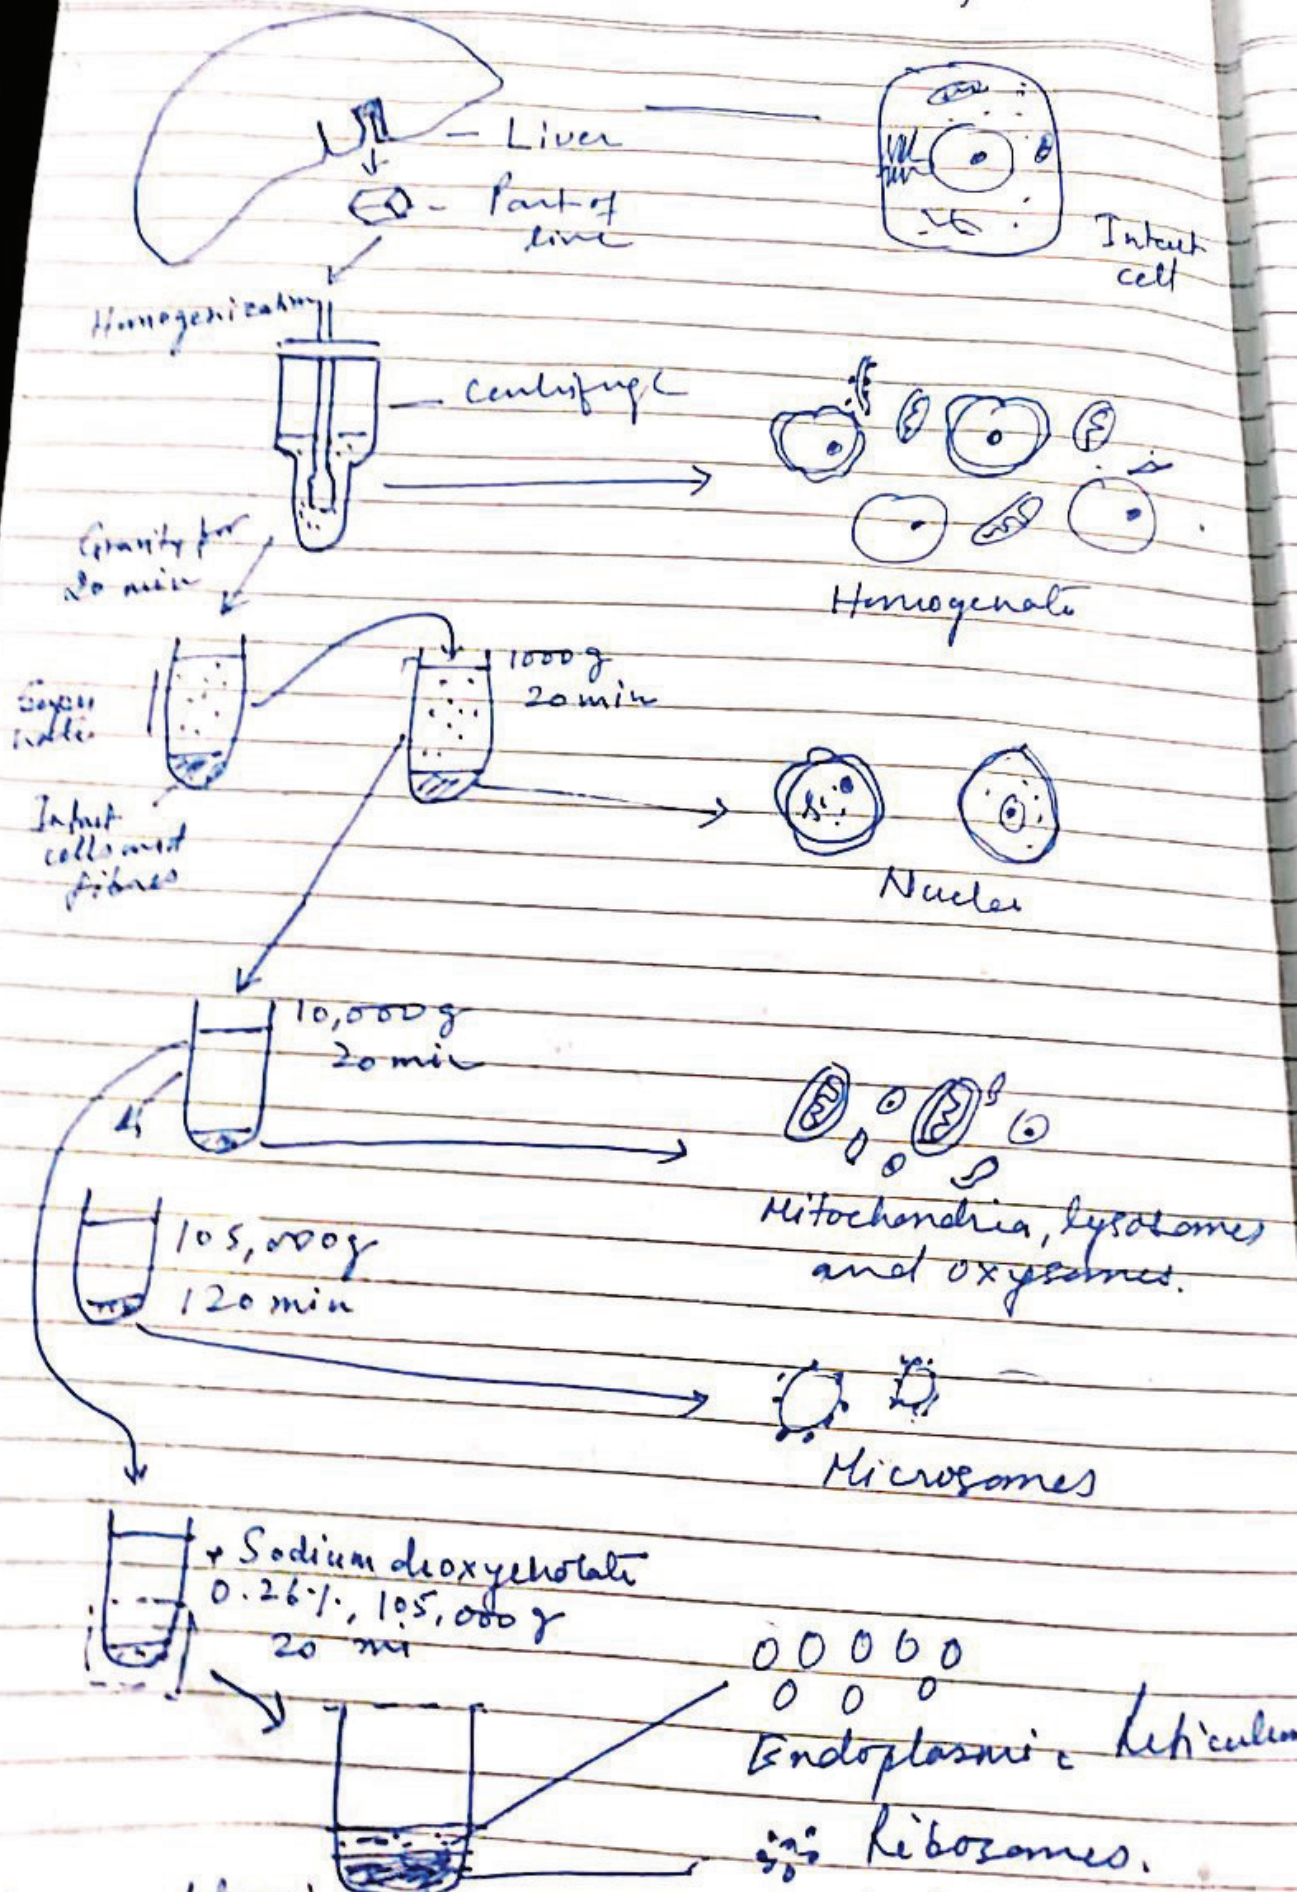 Liver
Part of
live
Intact
cell
Homogenization
Centrifuge
Gravity for
20 min
Homogenate
1000 g
20 min
Super
nate
Intact
cells and
fibres
Nuclei
10,000 g
20 min
Mitochondria, lysosomes
and oxysomes.
105,000g
120 min
Microsomes
+ Sodium deoxycholate
0.26%, 105,000 g
20 mi
Endoplasmic Reticulum
Ribosomes.